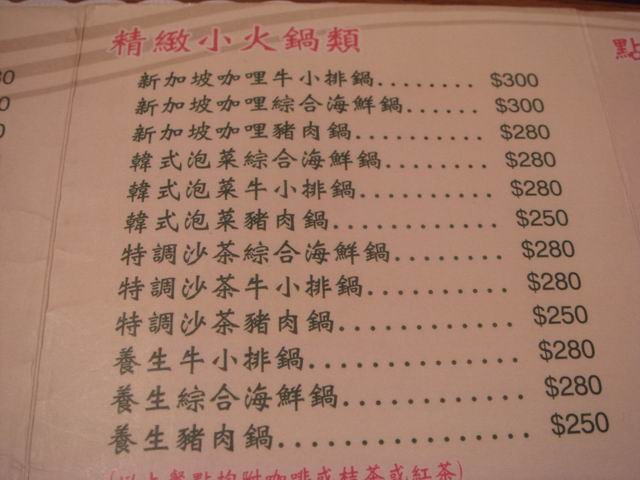 精緻小火鍋類
新加坡咖哩牛小排鍋........ $300
新加坡咖哩綜合海鮮鍋...... $300
新加坡咖哩豬肉鍋.......... $280
韓式泡菜綜合海鮮鍋........ $280
韓式泡菜牛小排鍋.......... $280
韓式泡菜豬肉鍋............ $250
特調沙茶綜合海鮮鍋........ $280
特調沙茶牛小排鍋.......... $280
特調沙茶豬肉鍋............ $250
養生牛小排鍋.............. $280
養生綜合海鮮鍋............ $280
養生豬肉鍋................ $250
(以上餐點均附咖啡或桔茶或紅茶)
點